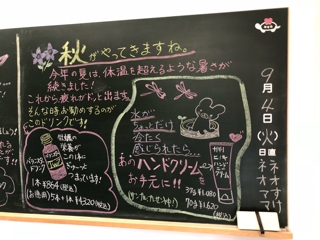 秋がやってきますね。
今年の夏は、体温を超えるような暑さが
続きました！
これから疲れがドッと出ます。
そんな時お勧めするのが
このドリンクです!!
牡蠣の
栄養が
この1本に
ぎゅーっと
つまってます!
1本 ¥864(税込)
5本+1本 ¥4320(税込)
水が
ちょっとだけ
冷たく
感じられたら…
あの ハンドクリームを
お手元に!!
37g ¥1,080
70g ¥1620
(税込)
9月4日(火)
日直